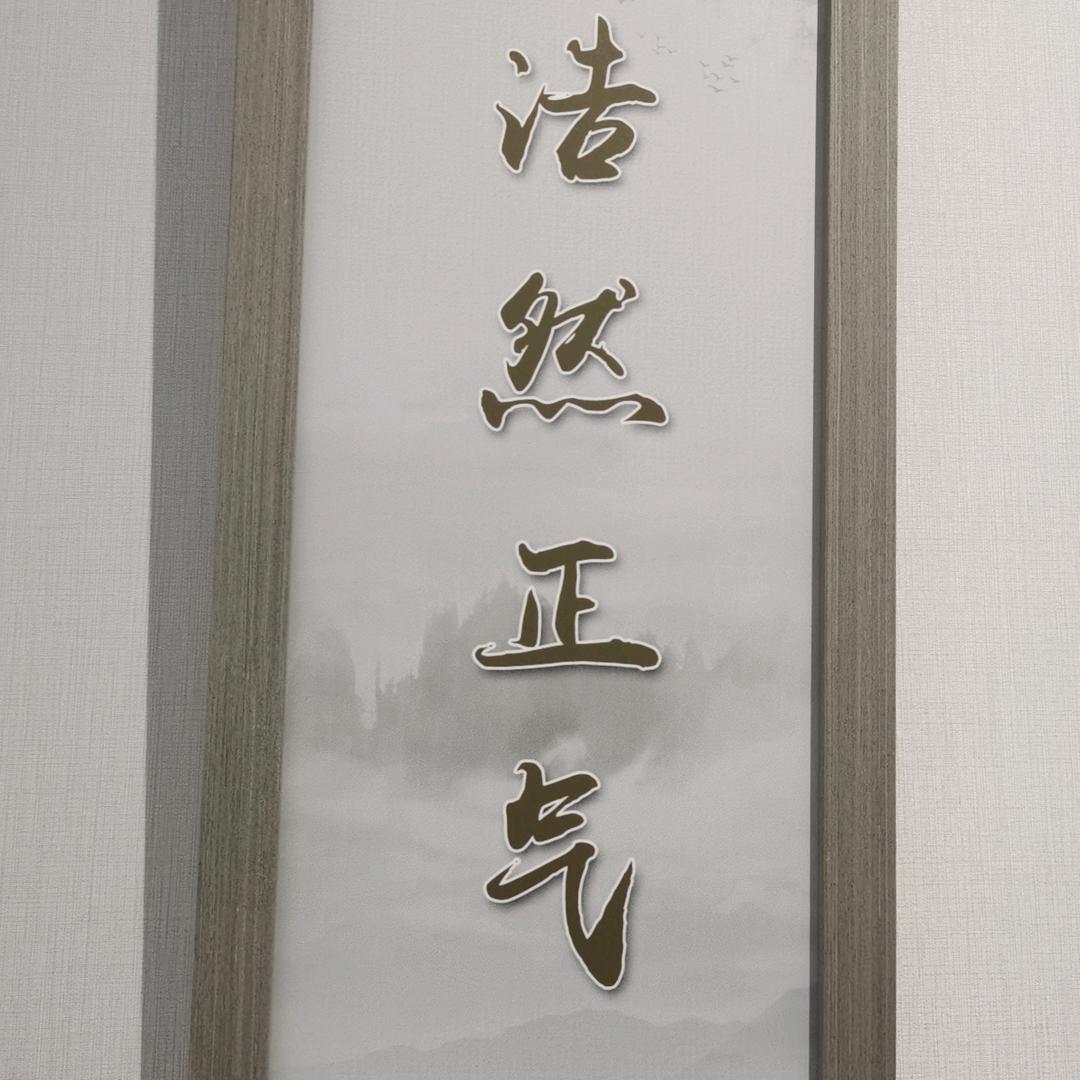 浩然正气